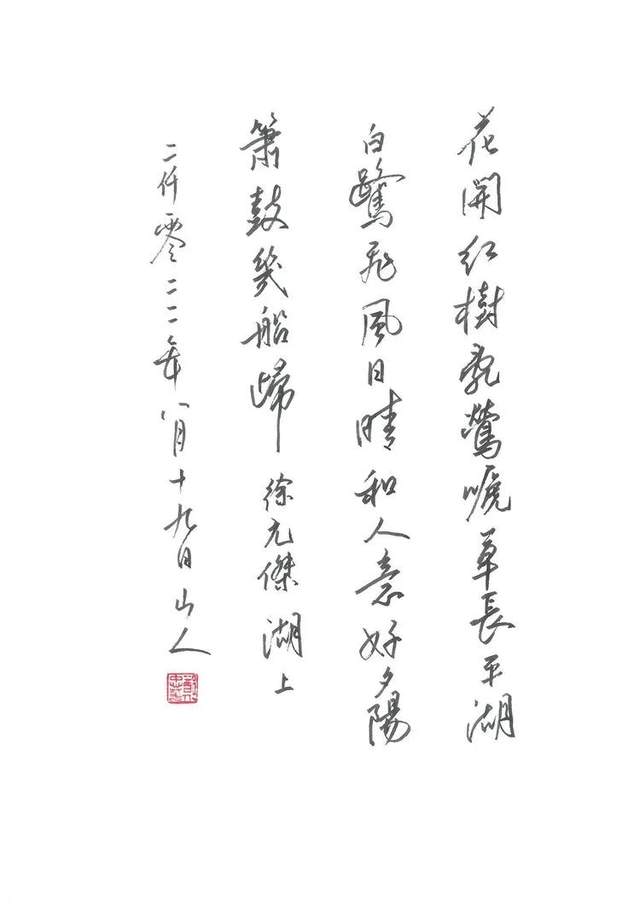 花開紅樹亂鶯啼草長平湖
白鷺飛風日晴和人意好夕陽
簫鼓幾船歸 徐元傑 湖上
二仟零二二年八月十九日山人